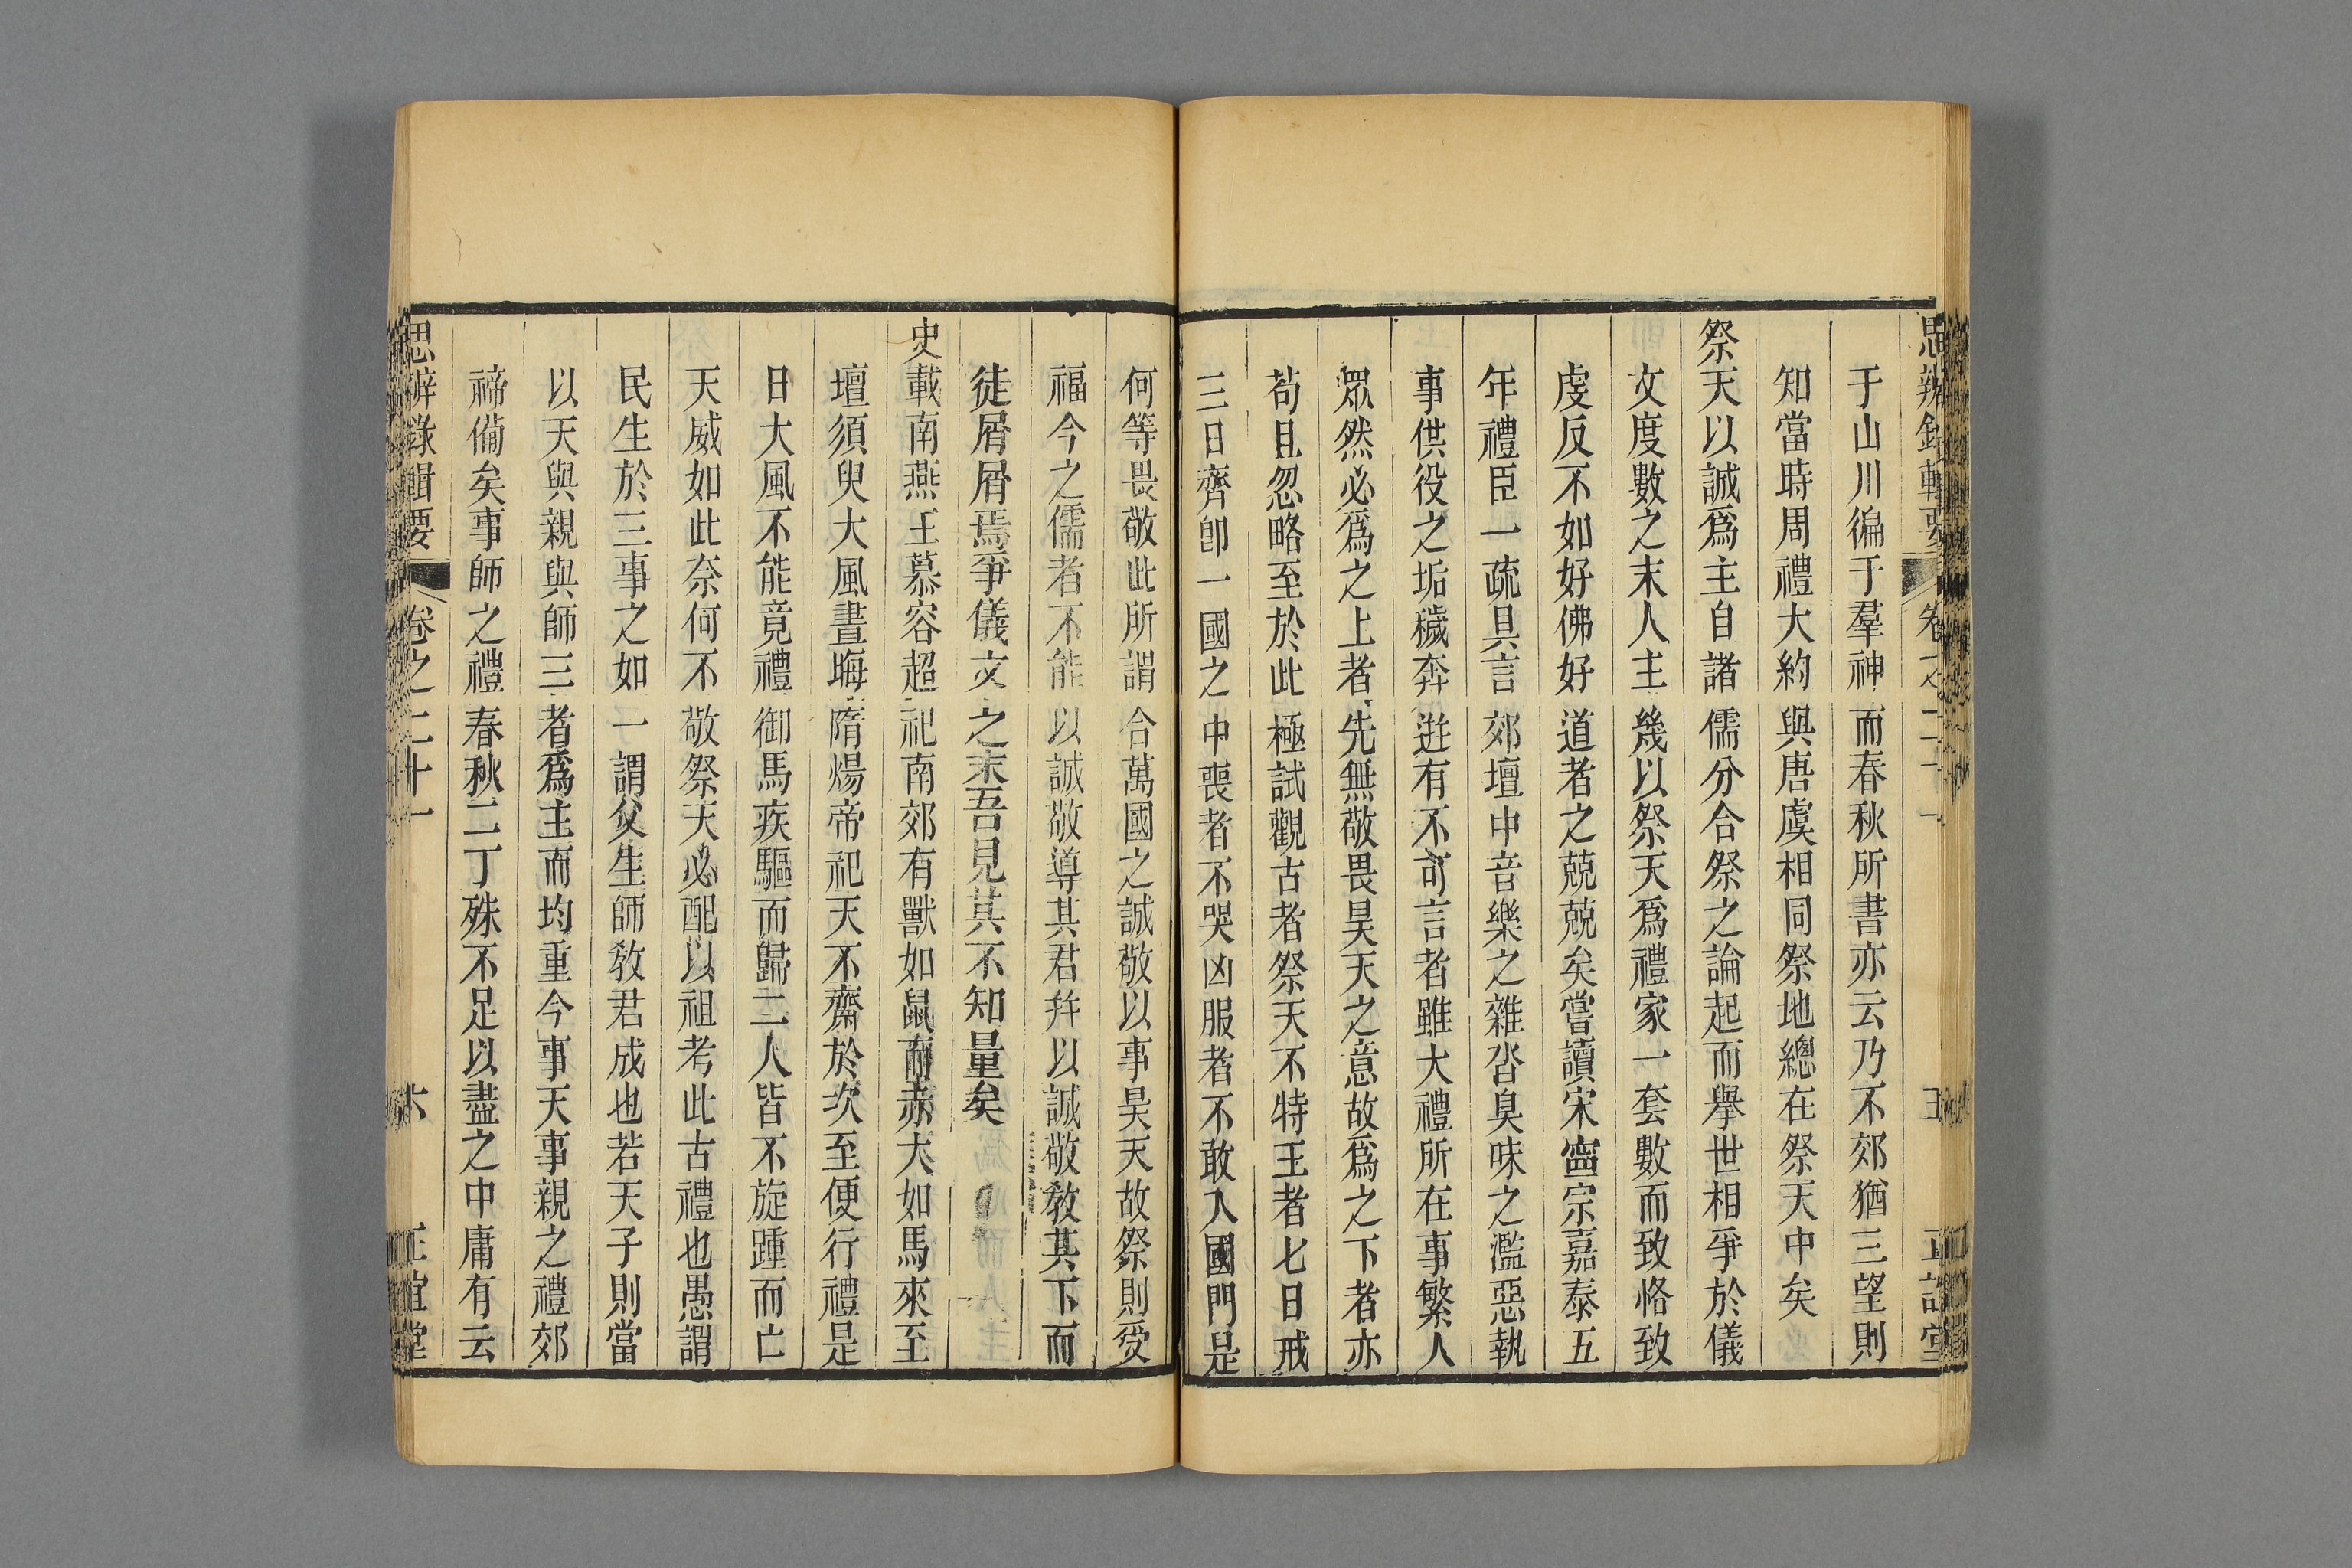 思辨錄輯要 卷之二十一 五 正誼堂
于山川徧于羣神而春秋所書亦云乃不郊猶三望則
知當時周禮大約與唐虞相同祭地總在祭天中矣
祭天以誠爲主自諸儒分合祭之論起而舉世相爭於儀
文度數之末人主幾以祭天爲禮家一套數而致恪致
虔反不如好佛好道者之兢兢矣嘗讀宋寧宗嘉泰五
年禮臣一疏具言郊壇中音樂之雜沓臭味之濫惡執
事供役之垢穢奔逰有不可言者雖大禮所在事繁人
眾然必爲之上者先無敬畏昊天之意故爲之下者亦
苟且忽略至於此極試觀古者祭天不特王者七日戒
三日齊卽一國之中喪者不哭凶服者不敢入國門是
何等畏敬此所謂合萬國之誠敬以事昊天故祭則受
福今之儒者不能以誠敬導其君幷以誠敬敎其下而
徒屑屑焉爭儀文之末吾見其不知量矣
史載南燕王慕容超祀南郊有獸如鼠而赤大如馬來至
壇須臾大風晝晦隋煬帝祀天不齋於次至便行禮是
日大風不能竟禮御馬疾驅而歸二人皆不旋踵而亡
天威如此奈何不敬祭天必配以祖考此古禮也愚謂
民生於三事之如一謂父生師敎君成也若天子則當
以天與親與師三者爲主而均重今事天事親之禮郊
禘備矣事師之禮春秋二丁殊不足以盡之中庸有云
思辨錄輯要 卷之二十一 六 正誼堂